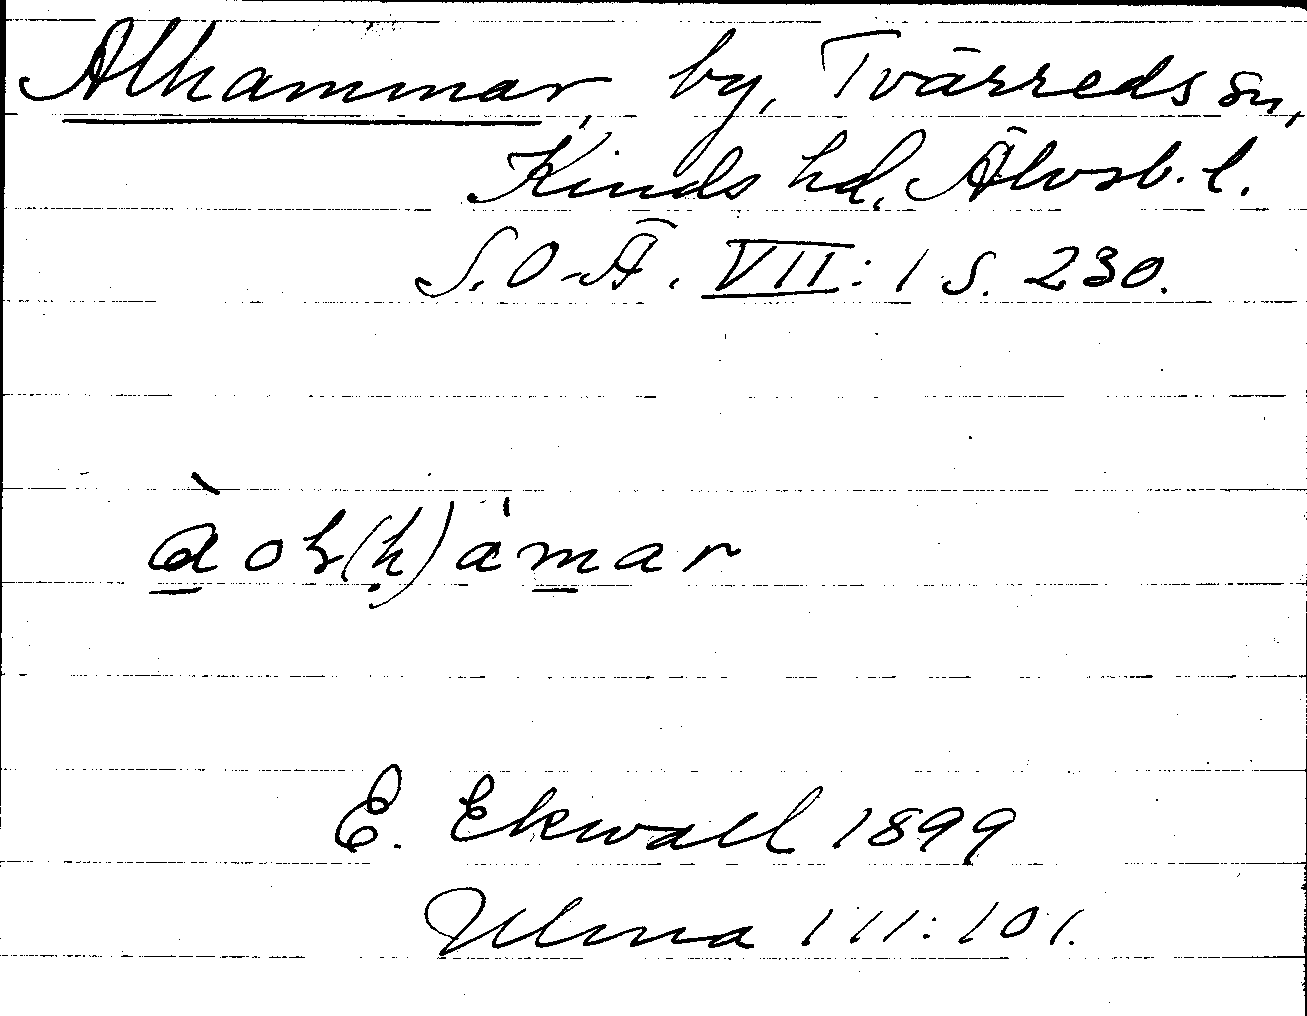 Alhammar, by, Tvärreds sn,
Kinds hd, Älvsb. l.
S.O-Ä. VII:1 S. 230.
E. Ekwall 1899
Ulma 111:101.